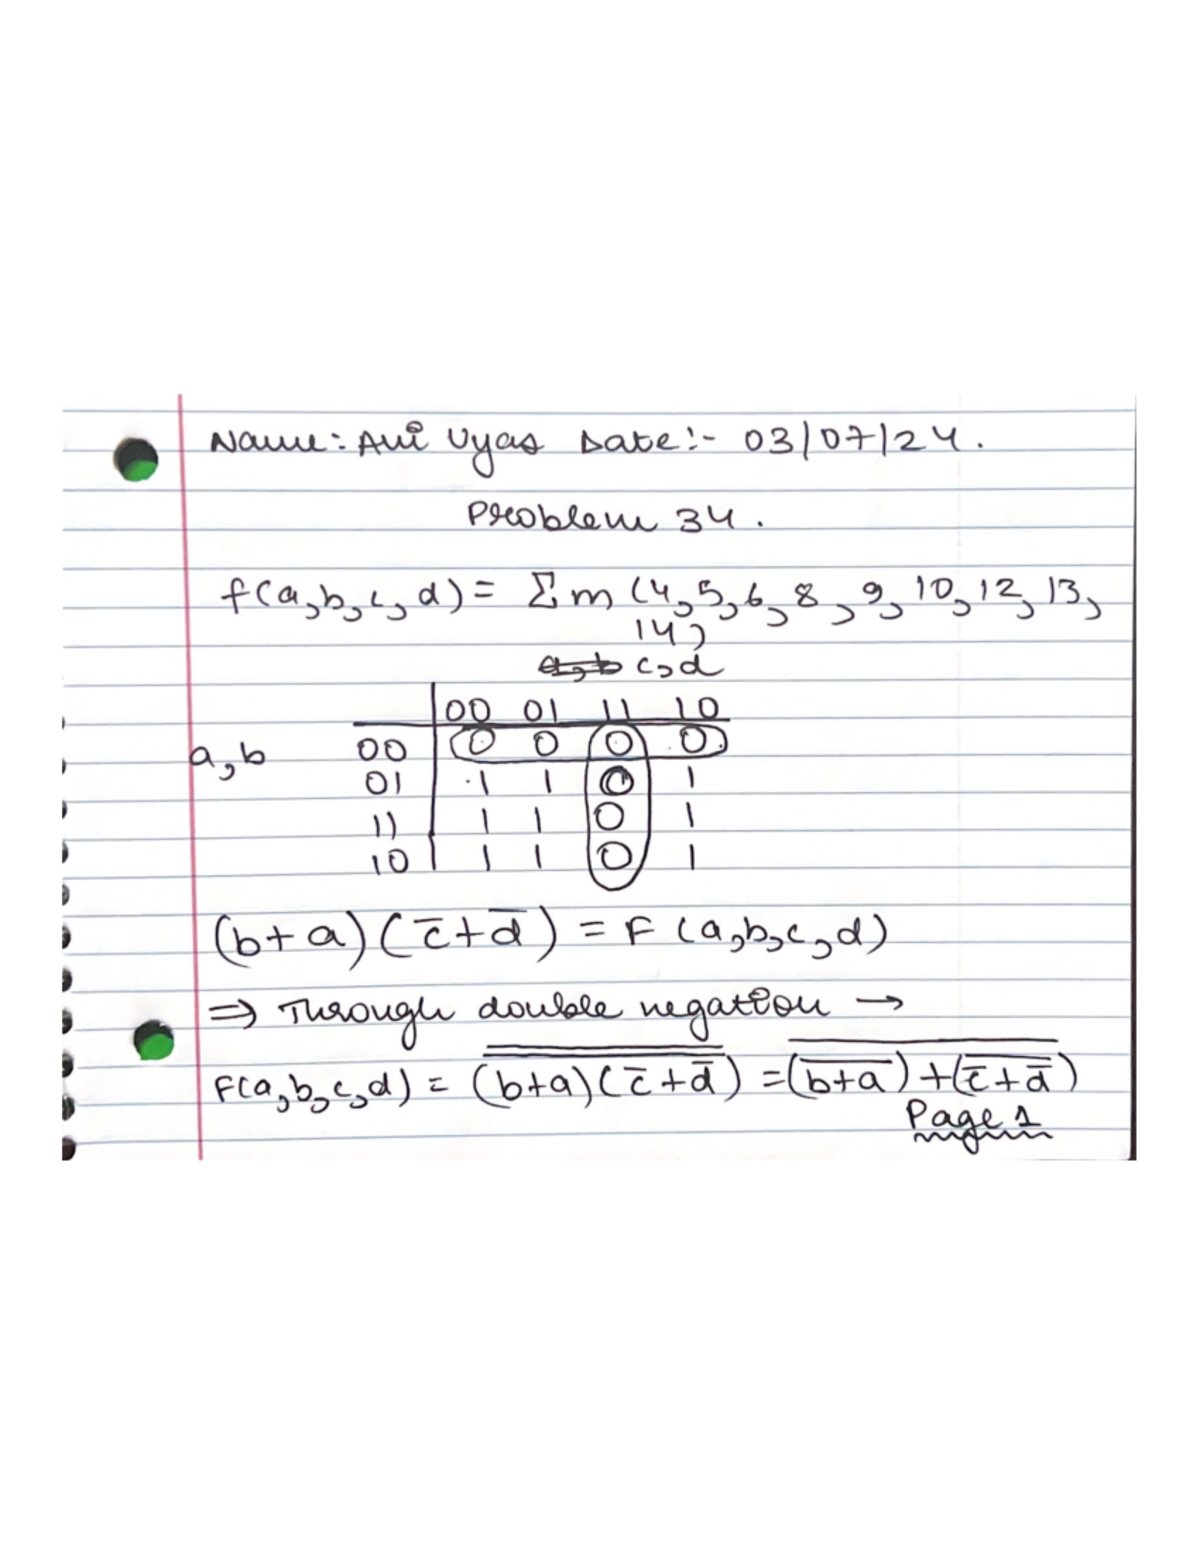 Name:- Avi Vyas Date:- 03/07/24.
Problem 34.
f(a,b,c,d) = Σm (4,5,6,8,9,10,12,13,
14)
a,b c,d
00 01 11 10
a,b 00 0 0 0 0
01 1 1 0 1
11 1 1 0 1
10 1 1 0 1
(b+a)(c̅+d̅) = F(a,b,c,d)
⇒ Through double negation →
F(a,b,c,d) = \overline{\overline{(b+a)(c̅+d̅)}} = \overline{(\overline{b+a})+(\overline{c̅+d̅})}
Page 1